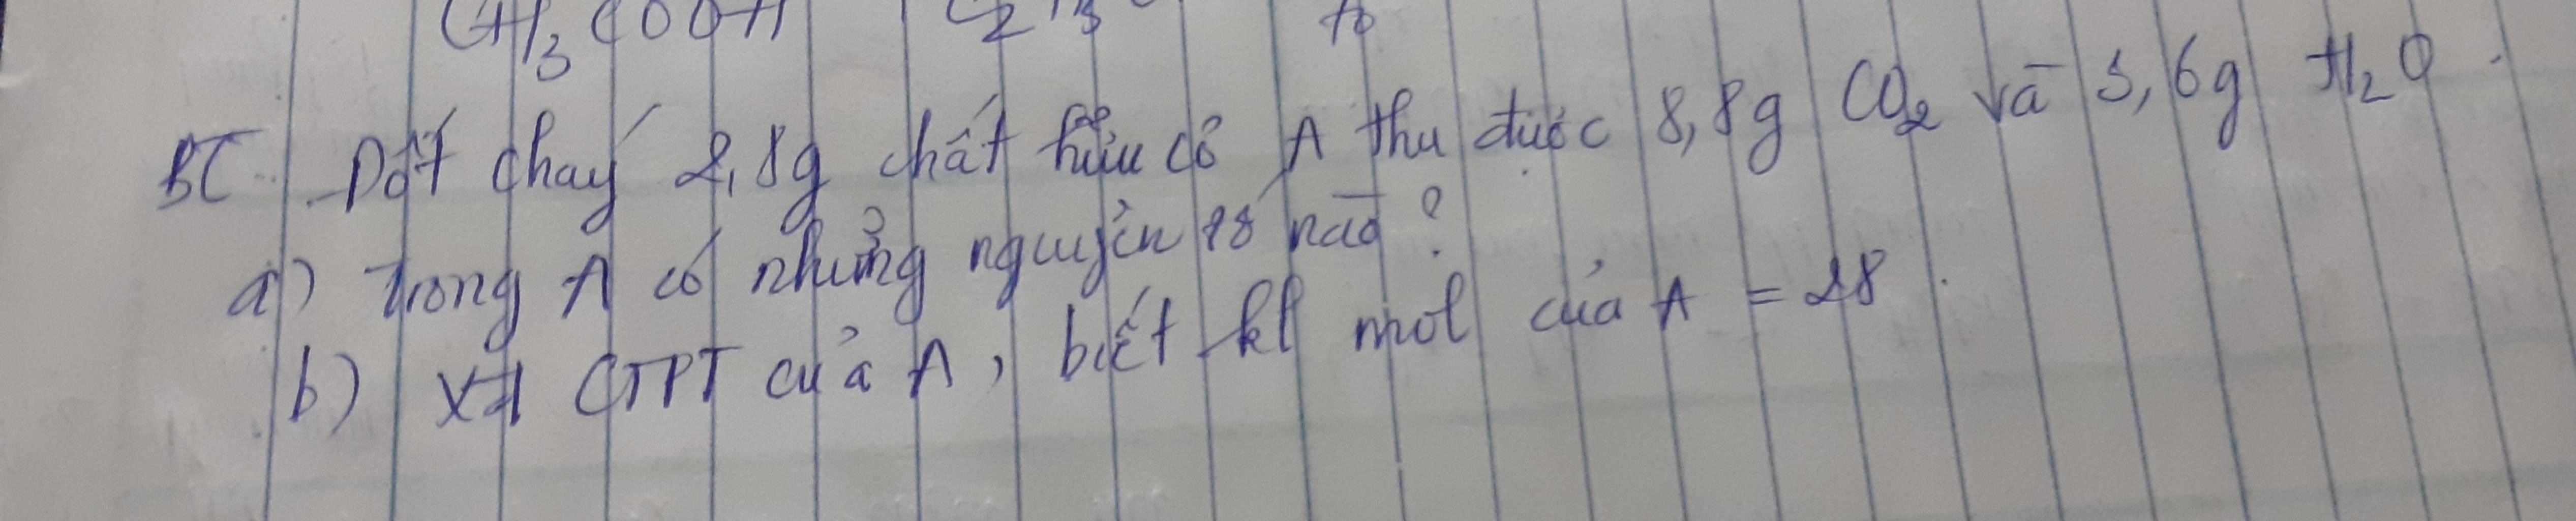 CH3COOH C2H5 to
BT. Đốt cháy 2,8g chất hữu cơ A thu được 8,8g CO2 và 3,6g H2O.
a) Trong A có những nguyên tố nào?
b) XĐ CTPT của A, biết kl mol của A = 28.